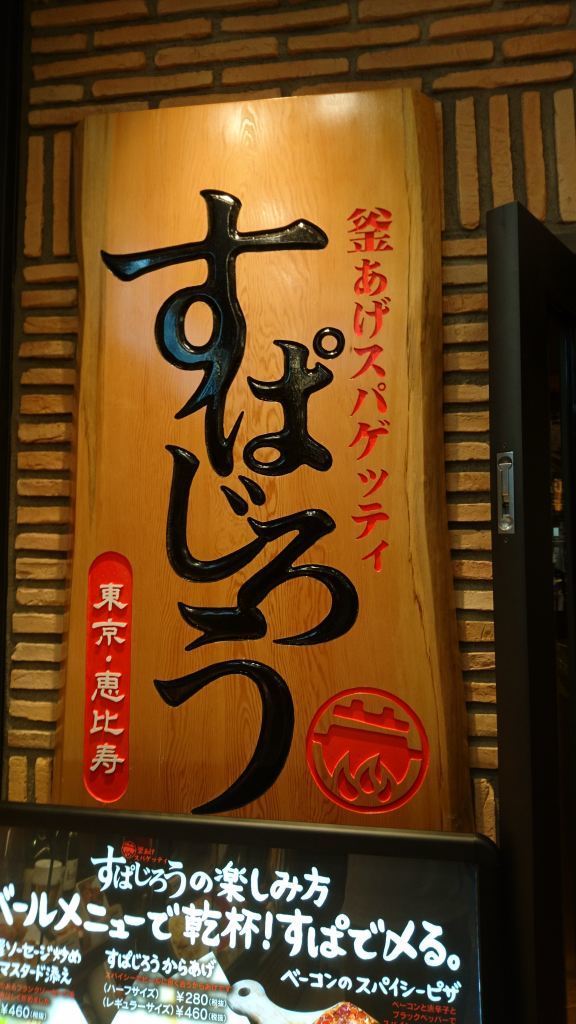 釜あげスパゲッティ
すぱじろう
東京・恵比寿
釜あげ
スパゲッティ
すぱじろうの楽しみ方
バールメニューで乾杯!すぱで〆る。
ソーセージ炒め
マスタード添え
¥460(税抜)
すぱじろうからあげ
(ハーフサイズ) ¥280(税抜)
(レギュラーサイズ) ¥460(税抜)
ベーコンのスパイシーピザ
ベーコンと唐辛子と
ブラックペッパーで